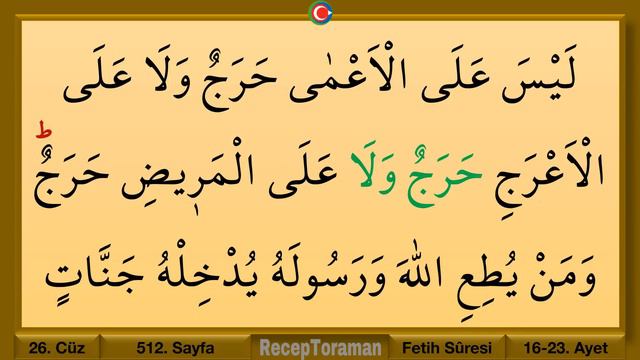 لَيْسَ عَلَى الْاَعْمٰى حَرَجٌ وَلَا عَلَى
الْاَعْرَجِ حَرَجٌ وَلَا عَلَى الْمَرٖيضِ حَرَجٌۜ
وَمَنْ يُطِعِ اللّٰهَ وَرَسُولَهُ يُدْخِلْهُ جَنَّاتٍ
26. Cüz 512. Sayfa RecepToraman Fetih Sûresi 16-23. Ayet